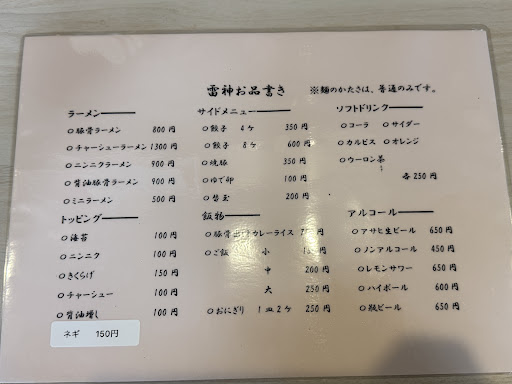 雷神お品書き ※麺のかたさは、普通のみです。
ラーメン
○豚骨ラーメン 800円
○チャーシューラーメン 1300円
○ニンニクラーメン 900円
○背油豚骨ラーメン 900円
○ミニラーメン 500円
トッピング
○海苔 100円
○ニンニク 100円
○きくらげ 150円
○チャーシュー 100円
○背油増し 100円
ネギ 150円
サイドメニュー
○餃子 4ヶ 350円
○餃子 8ヶ 600円
○焼豚 350円
○ゆで卵 100円
○替玉 200円
飯物
○豚骨出汁カレーライス 円
○ご飯 小 円
中 200円
大 250円
○おにぎり 1皿2ヶ 250円
ソフトドリンク
○コーラ ○サイダー
○カルピス ○オレンジ
○ウーロン茶
各250円
アルコール
○アサヒ生ビール 650円
○ノンアルコール 450円
○レモンサワー 650円
○ハイボール 600円
○瓶ビール 650円